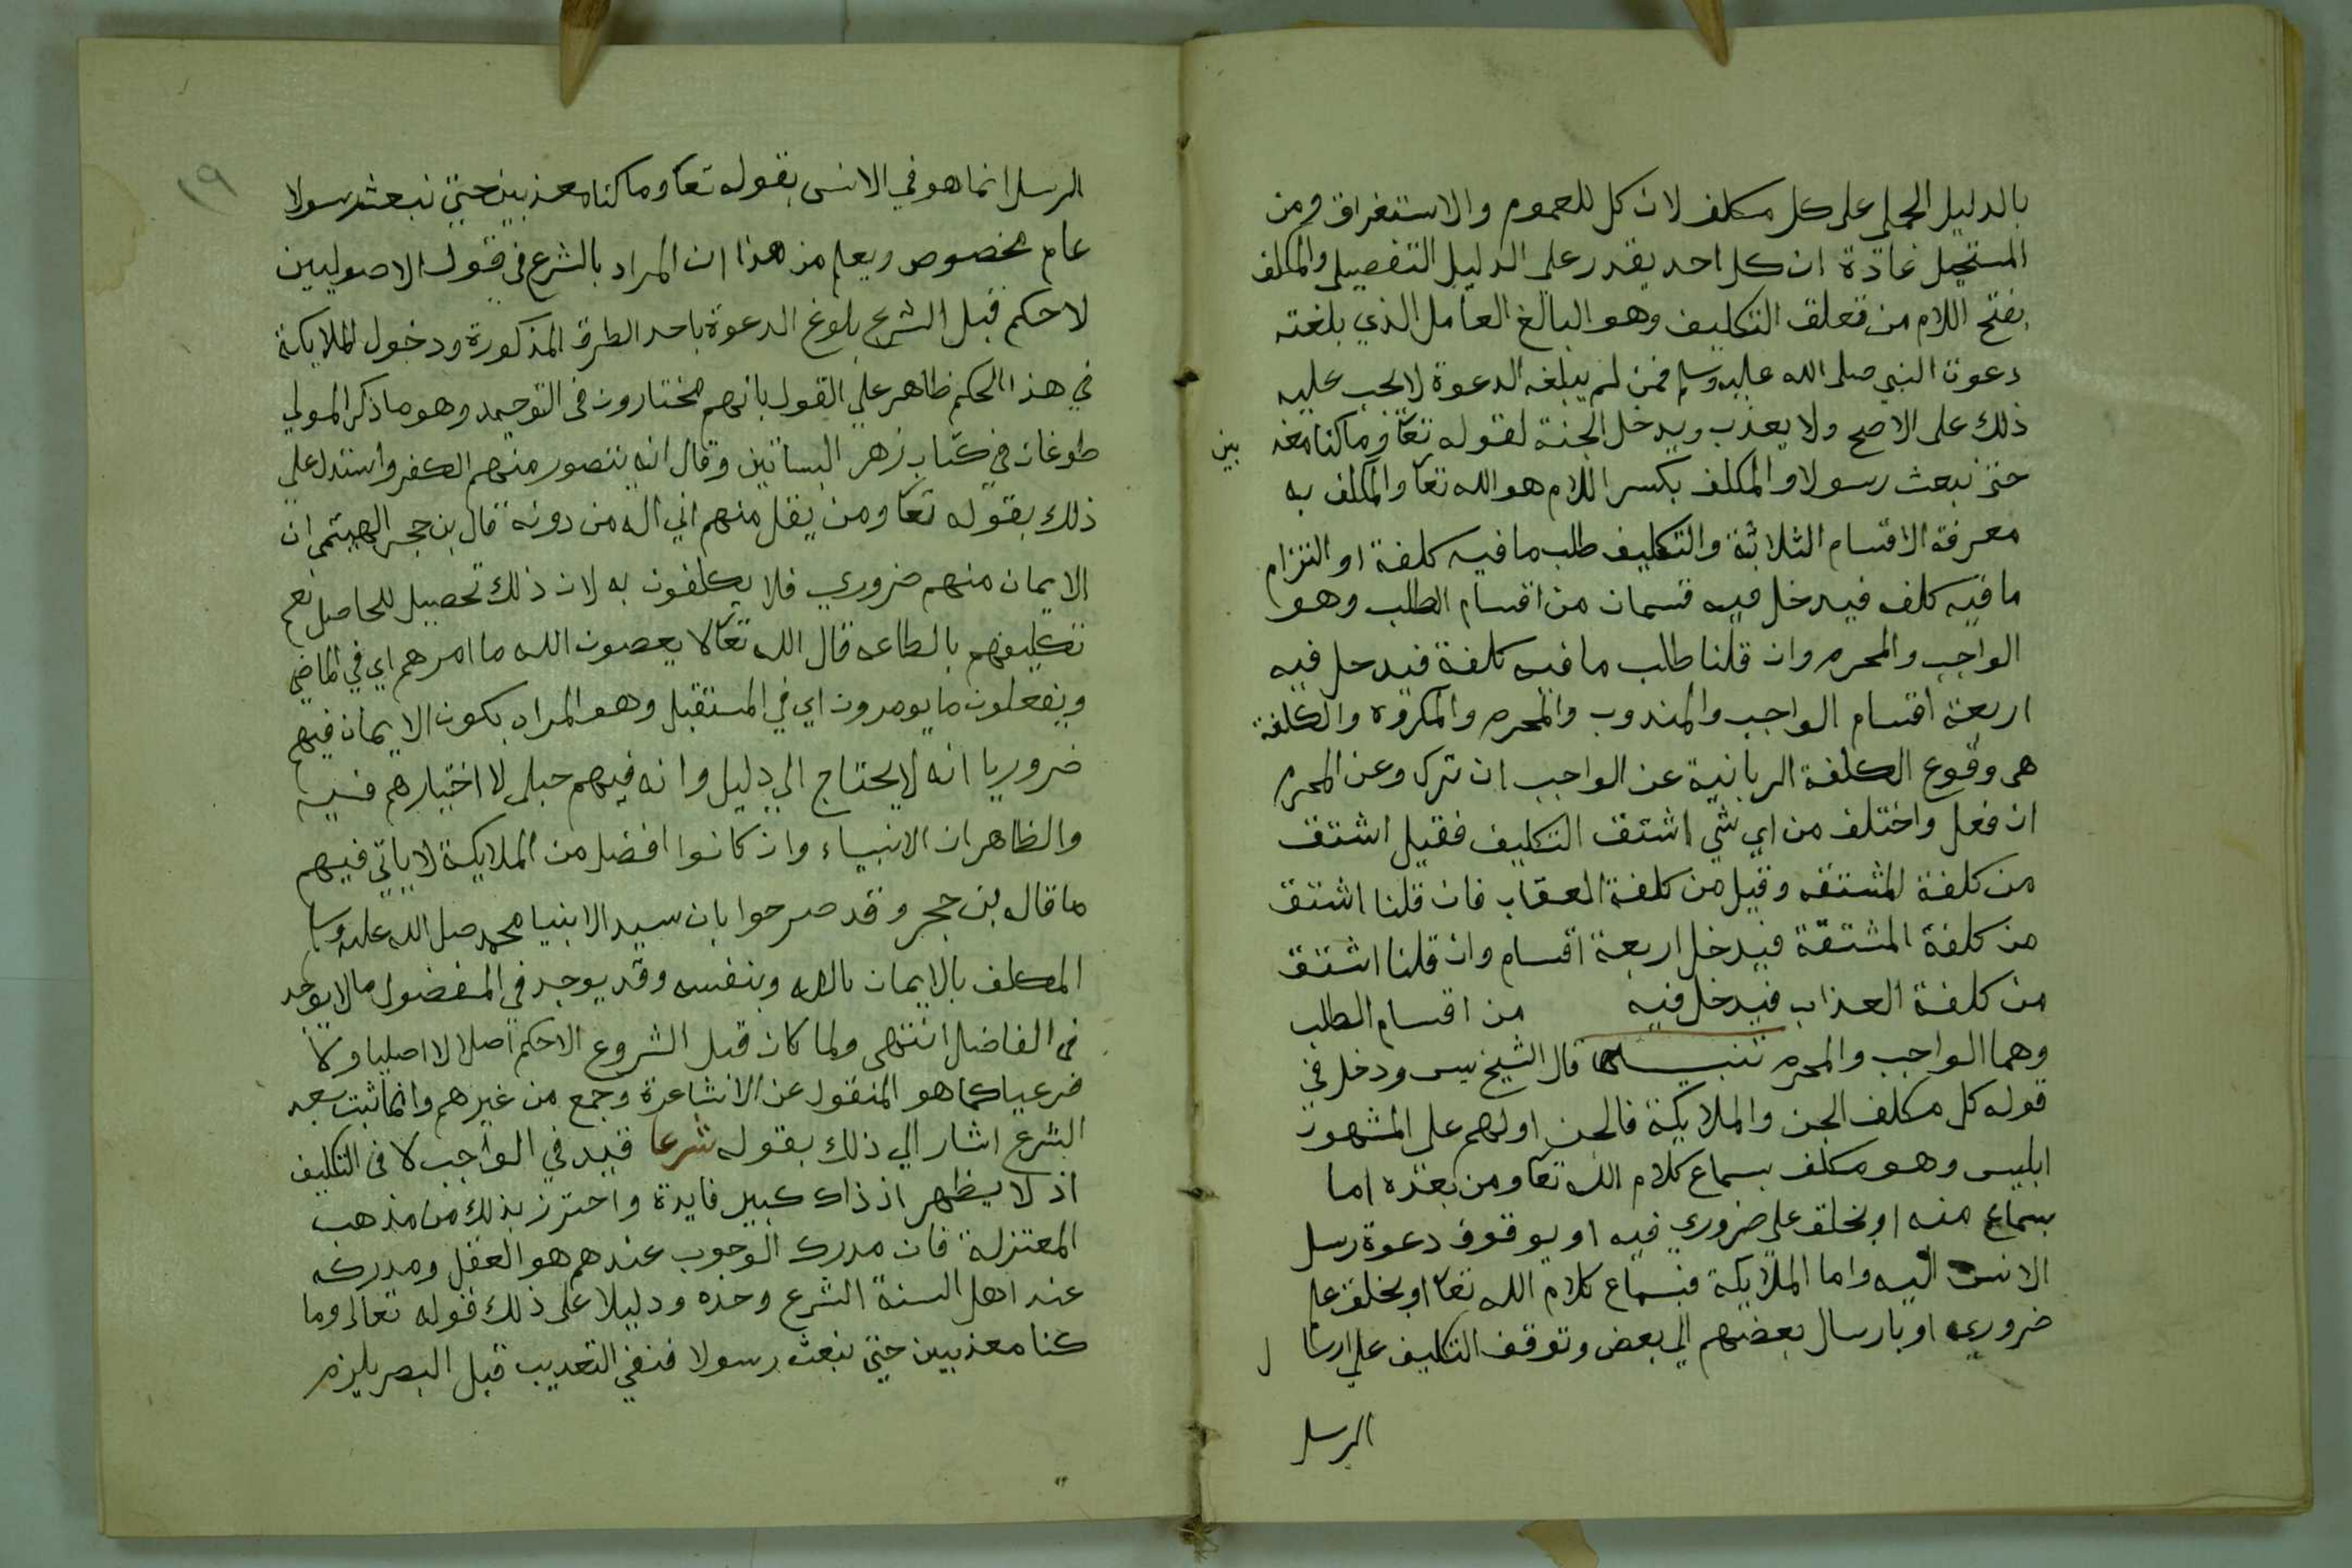 بالدليل الجملي على كل مكلف لان كل للعموم والاستغراق ومن
المستحيل عادة ان كل احد يقدر على الدليل التفصيلي والمكلف
بفتح اللام من تعلق التكليف وهو البالغ العاقل الذي بلغته
دعوة النبي صلى الله عليه وسلم فمن لم يبلغه الدعوة لا يجب عليه
ذلك على الاصح ولا يعذب ويدخل الجنة لقوله تعا وما كنا معذ بين
حتى نبعث رسولا والمكلف بكسر اللام هو الله تعا والمكلف به
معرفة الاقسام الثلاثة والتكليف طلب ما فيه كلفة او التزام
ما فيه كلف فيدخل فيه قسمان من اقسام الطلب وهو
الواجب والمحرم وان قلنا طلب ما فيه كلفة فيدخل فيه
اربعة اقسام الواجب والمندوب والمحرم والمكروه والكلفة
هى وقوع الكلفة الربانية عن الواجب ان ترك وعن المحرم
ان فعل واختلف من اي شي اشتق التكليف فقيل اشتق
من كلفة المشتقه وقيل من كلفة العقاب فان قلنا اشتق
من كلفة المشتقة فيدخل اربعة اقسام وان قلنا اشتق
من كلفة العذاب فيدخل فيه من اقسام الطلب
وهما الواجب والمحرم تنبيه قال الشيخ يس ودخل في
قوله كل مكلف الجن والملايكة فالجن اولهم على المشهور
ابليس وهو مكلف بسماع كلام الله تعا ومن بعده اما
بسماع منه او بخلق علم ضروري فيه او بوقوف دعوة رسل
الانس اليه واما الملايكة فبسماع كلام الله تعا او بخلق علم
ضروري او بارسال بعضهم الي بعض وتوقف التكليف علي ارسا ل
الرسل
١٩
الرسل انما هو في الانس بقوله تعا وما كنا معذبين حتي نبعث رسولا
عام مخصوص ويعلم من هذا ان المراد بالشرع فى قول الاصوليين
لا حكم قبل الشرع بلوغ الدعوة باحد الطرق المذكورة ودخول الملايكة
في هذا الحكم ظاهر علي القول بانهم مختارون فى التوحيد وهو ما ذكر المولي
طوغان في كتاب زهر البساتين وقال انه يتصور منهم الكفر واستدل علي
ذلك بقوله تعا ومن يقل منهم اني اله من دونه قال بن حجر الهيتمى ان
الايمان منهم ضروري فلا يكلفون به لان ذلك تحصيل للحاصل نعم
تكليفهم بالطاعه قال الله تعا لا يعصون الله ما امرهم اي في الماضي
ويفعلون ما يومرون اي في المستقبل وهو المراد بكون الايمان فيهم
ضروريا انه لا يحتاج الي دليل وانه فيهم جبلى لا اختيارهم فيه
والظاهر ان الانبياء وان كانوا افضل من الملايكة لا ياتي فيهم
ما قال بن حجر وقد صرحوا بان سيد الانبيا محمد صلى الله عليه وسلم
المكلف بالايمان بالله وبنفسه وقد يوجد في المفضول ما لا يوجد
فى الفاضل انتهى ولما كان قبل الشروع لا حكم اصلا لا اصليا ولا
فرعيا كما هو المنقول عن الاشاعرة وجمع من غيرهم وانما ثبت بعد
الشرع اشار الي ذلك بقوله شرعا قيد في الواجب لا فى التكليف
اذ لا يظهر اذ ذاك كبير فايدة واحترز بذلك من مذهب
المعتزلة فان مدرك الوجوب عندهم هو العقل ومدركه
عند اهل السنة الشرع وحده ودليلا على ذلك قوله تعالى وما
كنا معذبين حتي نبعث رسولا فنفي التعذيب قبل البصر يلزم